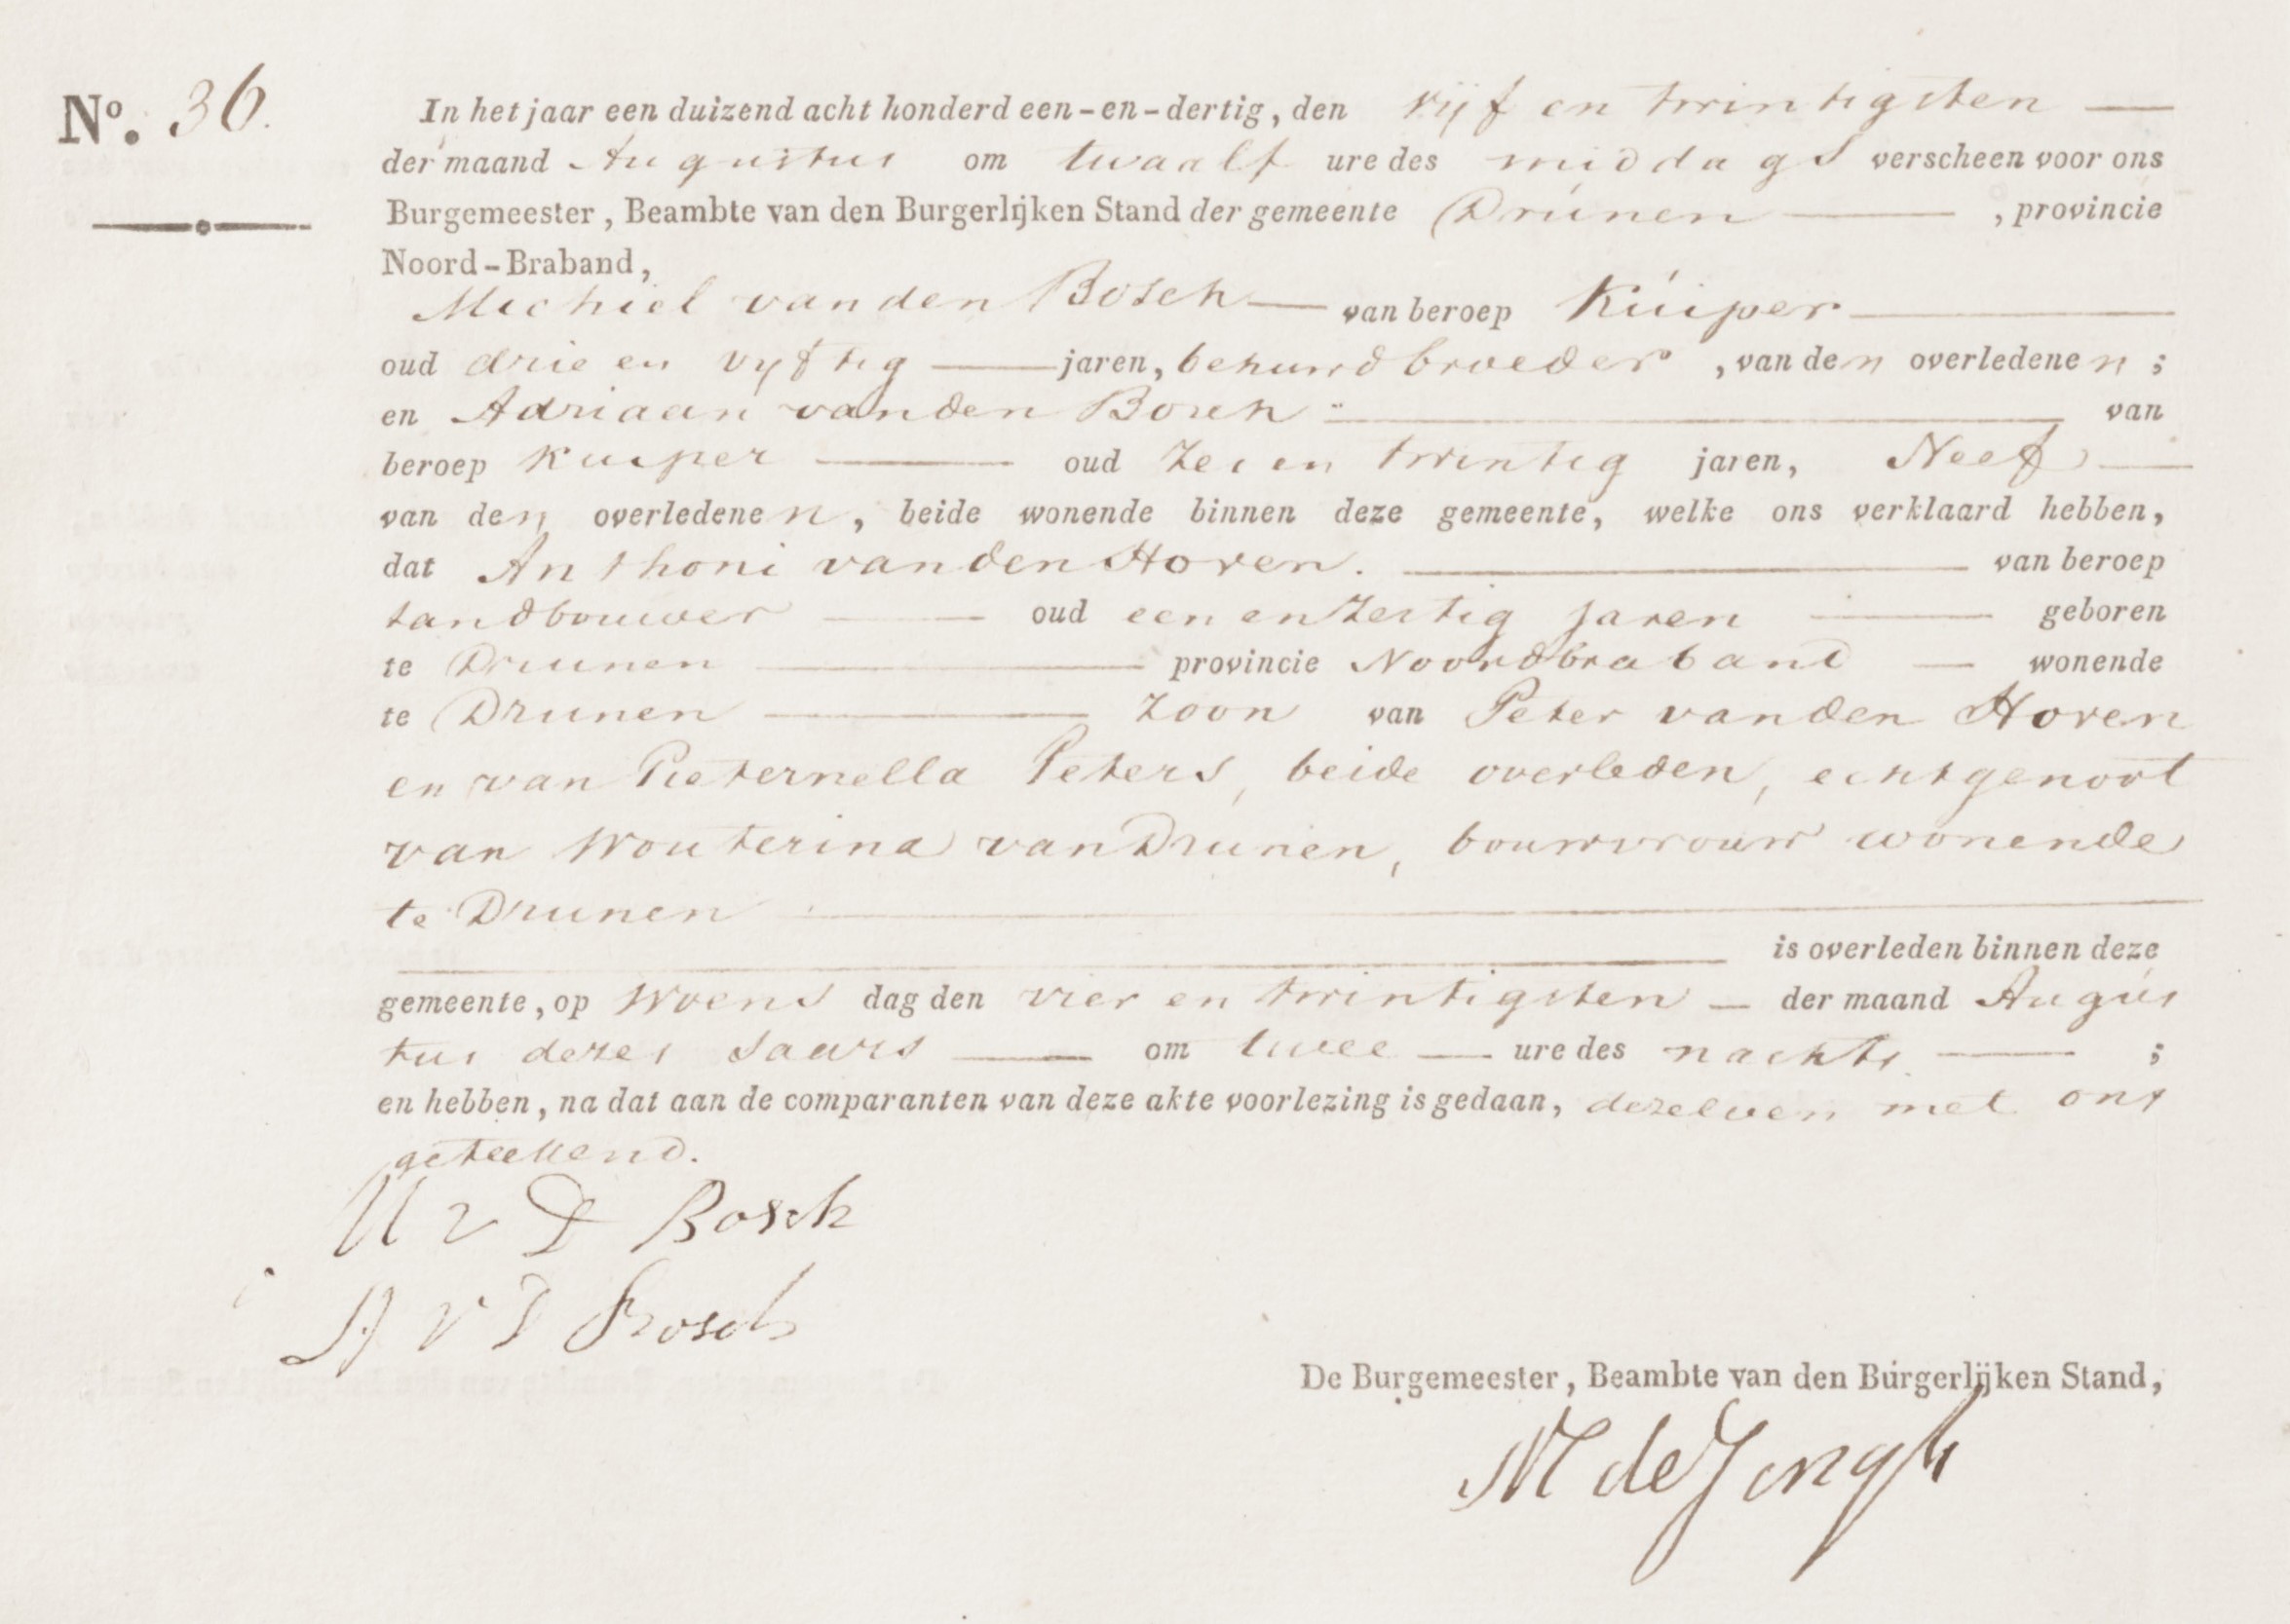 No. 36.
In het jaar een duizend acht honderd een-en-dertig, den vijf en twintigsten
der maand Augustus om twaalf ure des middags verscheen voor ons
Burgemeester, Beambte van den Burgerlijken Stand der gemeente Drunen, provincie
Noord-Braband,
Michiel van den Bosch van beroep Kuiper
oud drie en vyftig jaren, behuwdbroeder, van den overledenen;
en Adriaan van den Bosch van
beroep Kuiper oud Zes en twintig jaren, Neef
van den overledenen, beide wonende binnen deze gemeente, welke ons verklaard hebben,
dat Anthoni van den Hoven. van beroep
landbouwer oud een en Zestig jaren geboren
te Drunen provincie Noordbraband wonende
te Drunen Zoon van Peter van den Hoven
en van Pieternella Peters, beide overleden, echtgenoot
van Wouterina van Drunen, bouwvrouw wonende
te Drunen
is overleden binnen deze
gemeente, op Woens dag den vier en twintigsten der maand Augus
tus dezes Jaars om twee ure des nachts;
en hebben, na dat aan de comparanten van deze akte voorlezing is gedaan, dezelven met ons
geteekend.
M v D Bosch
A v D Bosch
De Burgemeester, Beambte van den Burgerlijken Stand,
M de Jongh